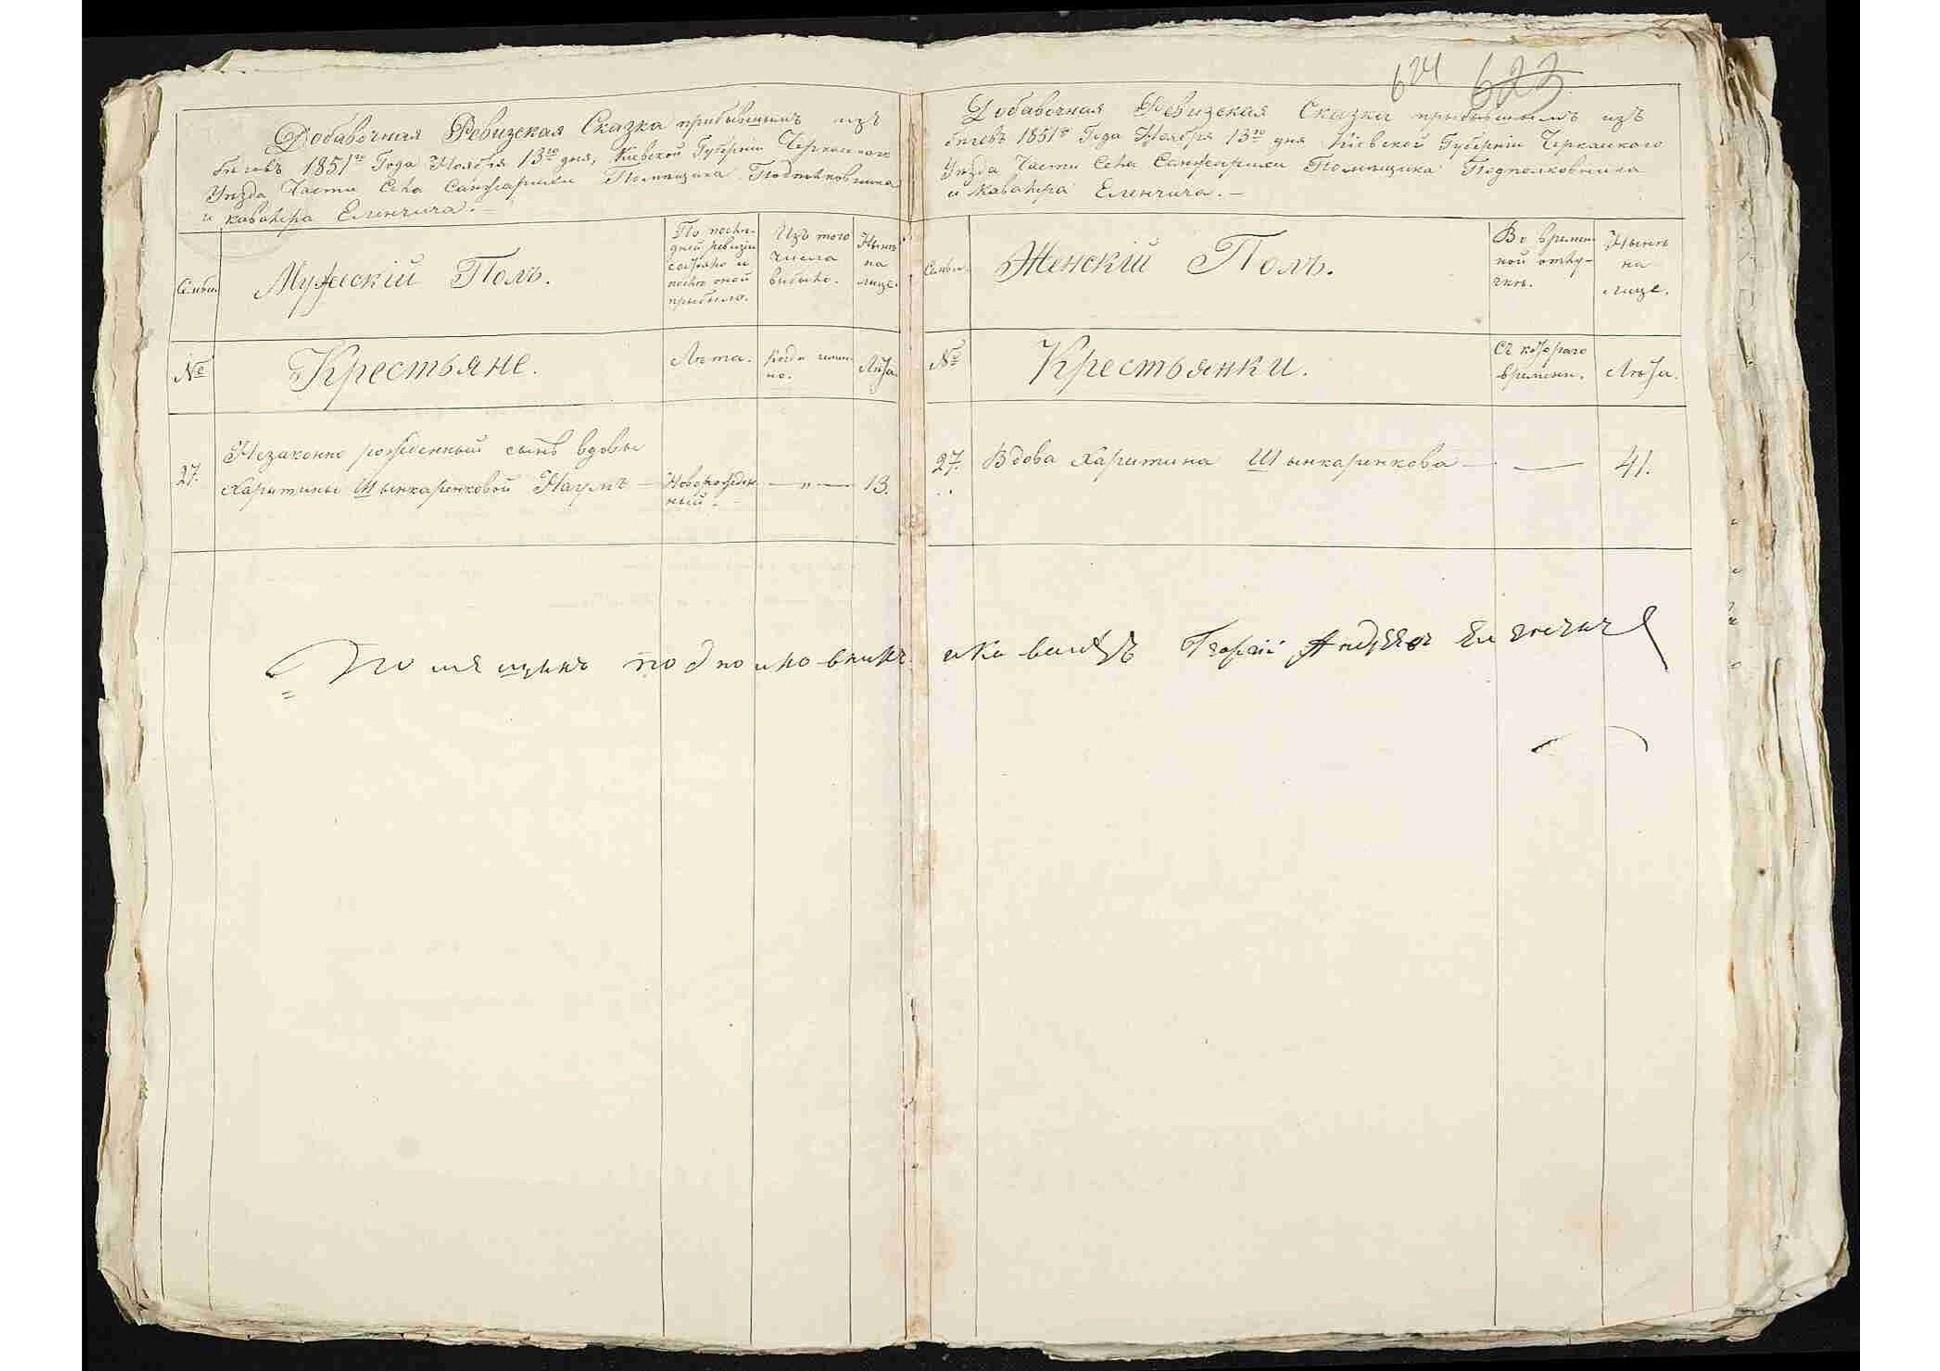 624 623
Добавочная Ревизская Сказка прибывшимъ изъ
бѣговъ 1851го Года Ноября 13го дня, Кіевской Губерніи Черкаскаго
Уѣзда Части Села Санжарихи Помѣщика Подполковника
и кавалера Еленчича.-
Семьи.
Мужескій Полъ.
По послѣ-
дней ревизіи
состояло и
послѣ оной
прибыло.
Изъ того
числа
выбыло.
Нынѣ
на
лице.
№
Крестьяне.
Лѣта.
Когда имен-
но.
Лѣта
27.
Незаконно рожденный сынъ вдовы
Харитины Шынкаренковой Наумъ —
Новорожден-
ный. -
— „ —
13.
Добавочная Ревизская Сказка прибывшимъ изъ
бѣговъ 1851го Года Ноября 13го дня Кіевской Губерніи Черкаскаго
Уѣзда Части Села Санжарихи Помѣщика Подполковника
и Кавалера Еленчича. -
Семьи.
Женскій Полъ.
Во времен-
ной отлу-
чкѣ.
Нынѣ
на
лице.
№
Крестьянки.
Съ котораго
времени.
Лѣта.
27.
Вдова Харитина Шынкаренкова —
—
41.
Помѣщикъ подполковникъ и Кавалеръ Георгій Андреевъ Еленчичъ